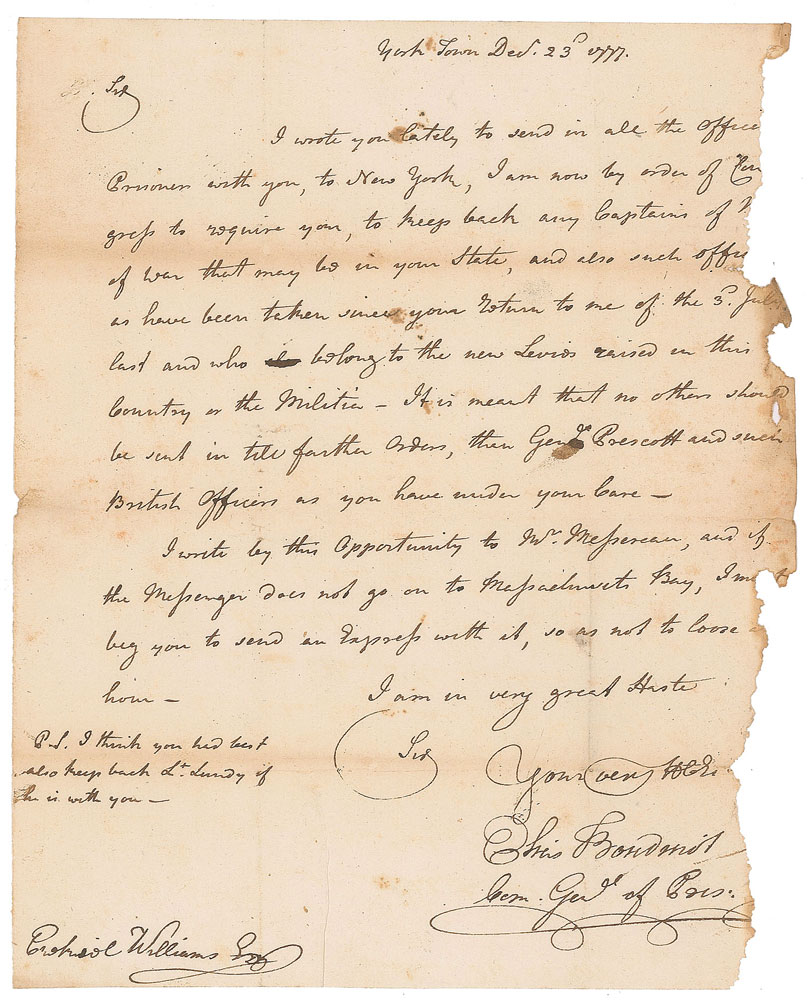 York Town Decr. 23d 1777.
Sir
I wrote you lately to send in all the Offic
Prisoners with you, to New York, I am now by order of Con
gress to require you, to keep back any Captains of
of war that may be in your State, and also such offi
as have been taken since your Return to me of the 3d. July
last and who belong to the new Levies raised in this
Country or the Militia — It is meant that no others should
be sent in till farther Orders, then Genl. Prescott and such
British Officers as you have under your Care —
I write by this Opportunity to Mr. Messereau, and if
the Messenger does not go on to Massachusets Bay, I must
beg you to send an Express with it, so as not to loose
hour —
I am in very great Haste
Sir
Your very
Elias Boudinot
Com. Genl. of Pris:
P.S. I think you had best
also keep back Lt. Lundy if
he is with you —
Ezekiel Williams Esq